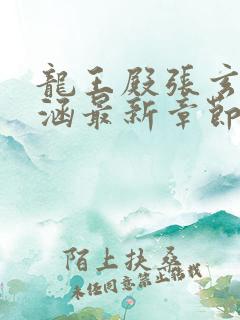 龍王殿張玄
涵最新章節
陌上扶桑
未任同意禁止轉載